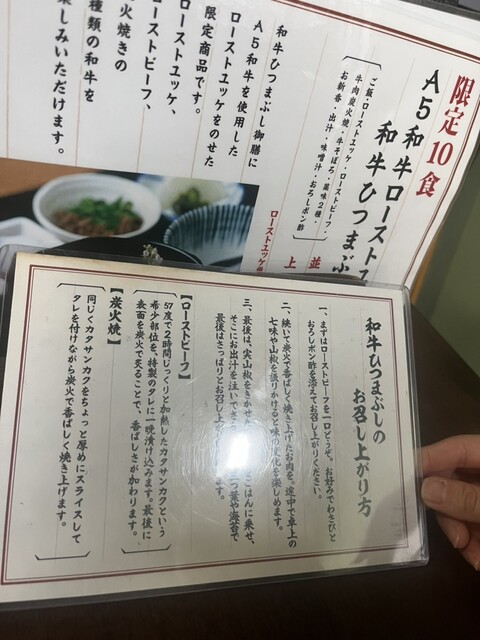 限定10食
A5和牛ロースト
和牛ひつまぶ
ご飯・ローストエッケ・ローストビーフ・
牛肉炭火焼・牛そぼろ・薬味2種・
お新香・出汁・味噌汁・おろしポン酢
並
上
ローストエッケ
和牛ひつまぶし御膳に
A5和牛を使用した
ローストエッケをのせた
限定商品です。
ローストエッケ、
ローストビーフ、
火焼きの
種類の和牛を
楽しみいただけます。
和牛ひつまぶしの
お召し上がり方
一、まずはローストビーフを一口どうぞ。お好みでわさびと
おろしポン酢を添えてお召し上がりください。
二、続いて炭火で香ばしく焼き上げたお肉を。途中で卓上の
七味や山椒を振りかけると味の変化を楽しめます。
三、最後は、実山椒をきかせた
ごはんに乗せ、
そこにお出汁を注いで
三つ葉や海苔で
最後はさっぱりとお召し上
ます。
【ローストビーフ】
57度で2時間じっくりと加熱したカタサンカクという
希少部位を、特製のタレに一晩漬け込みます。最後に
表面を炭火で炙ることで、香ばしさが加わります。
【炭火焼】
同じくカタサンカクをちょっと厚めにスライスして
タレを付けながら炭火で香ばしく焼き上げます。